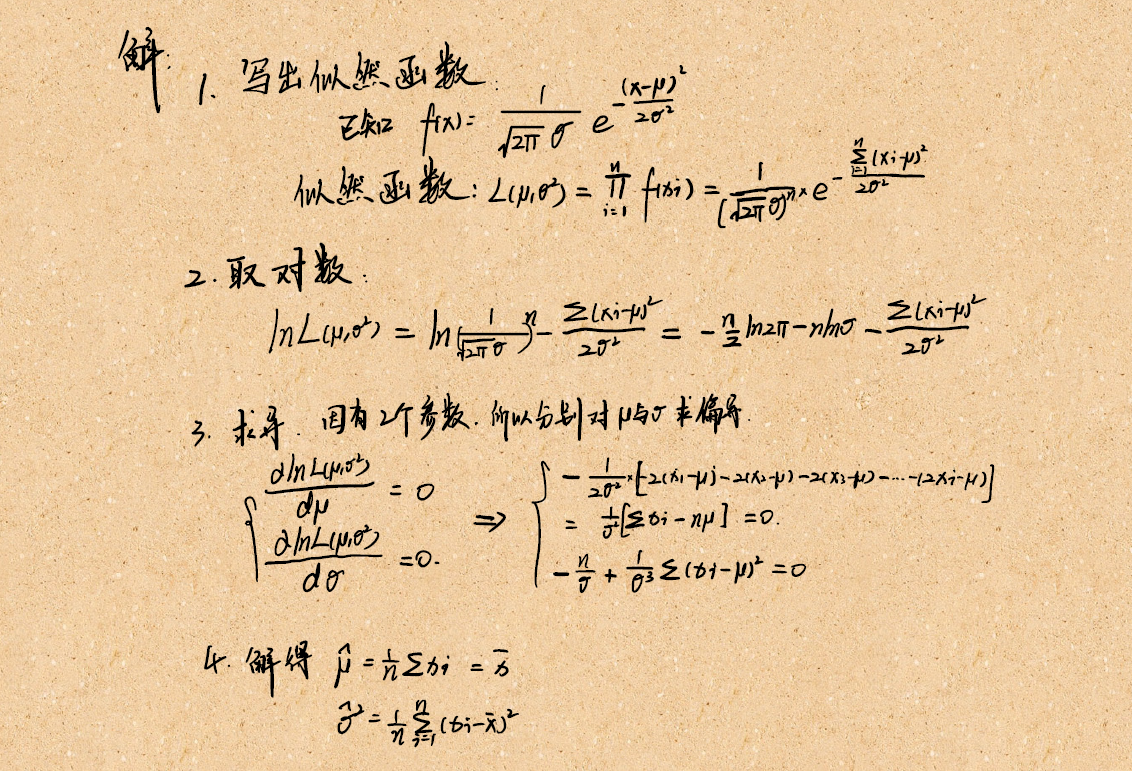 解:
1. 写出似然函数:
已知 f(x) = \frac{1}{\sqrt{2π} σ} e^{-\frac{(x-μ)^2}{2σ^2}}
似然函数: L(μ,σ²) = \prod_{i=1}^{n} f(xi) = \frac{1}{(\sqrt{2π} σ)^n} × e^{-\frac{\sum_{i=1}^{n}(xi-μ)^2}{2σ^2}}
2. 取对数:
lnL(μ,σ²) = ln(\frac{1}{\sqrt{2π} σ})^n - \frac{Σ(xi-μ)^2}{2σ^2} = -\frac{n}{2}ln2π - nlnσ - \frac{Σ(xi-μ)^2}{2σ^2}
3. 求导. 因有2个参数. 所以分别对μ与σ求偏导.
\frac{∂lnL(μ,σ²)}{dμ} = 0 ⇒ -\frac{1}{2σ^2}×[-2(x₁-μ)-2(x₂-μ)-2(x₃-μ)-…-(2xi-μ)]
= \frac{1}{σ^2}[Σxi-nμ] = 0.
\frac{∂lnL(μ,σ²)}{dσ} = 0. -\frac{n}{σ} + \frac{1}{σ^3}Σ(xi-μ)² = 0
4. 解得 \hat{μ} = \frac{1}{n}Σxi = \bar{x}
\hat{σ}² = \frac{1}{n}\sum_{i=1}^{n}(xi-\bar{x})²